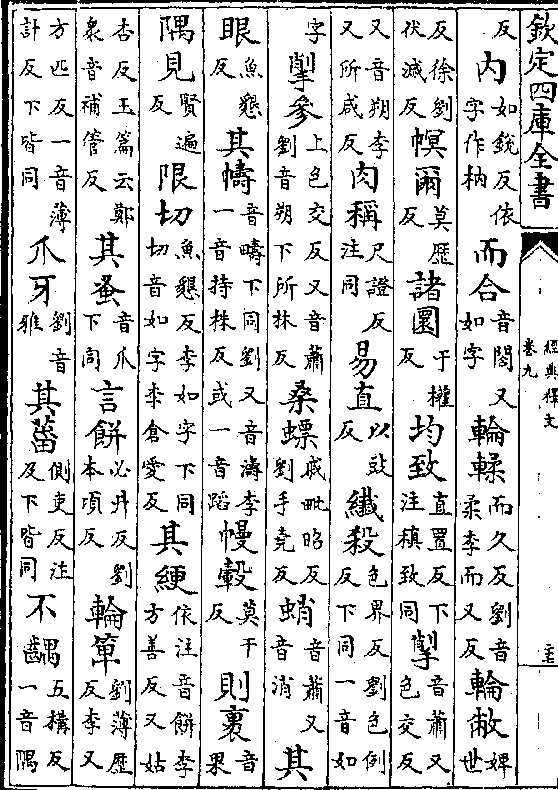 欽定四庫全書
經典釋文
卷九
反 內如銳反依字作枘 而合音閤又如字 輪輮而久反劉音柔李而又反 輪敝婢世
反徐劉伏滅反 幎爾莫歷反 諸圜于權反 均致直置反下注稹致同 揱音蕭又色交反
又音朔李又所咸反 肉稱尺證反注同 易直以豉反 纖殺色界反劉色例反下同一音如
字 揱參上色交反又音蕭劉音朔下所林反 桑螵戚毗昭反劉手堯反 蛸音蕭又音消 其
眼魚懇反 其幬音疇下同劉又音濤李一音持株反或一音蹈 幔轂莫干反 則裹音果
隅見賢遍反 限切魚懇反李如字下同切音如字李倉愛反 其綆依注音餅李方善反又姑
杏反玉篇云鄭衆音補管反 其蚤音爪下同 言餅必井反劉本頃反 輪箄劉薄歷反李又
方匹反一音薄計反下皆同 爪牙劉音雅 其菑側吏反注及下皆同 不齵五構反一音隅